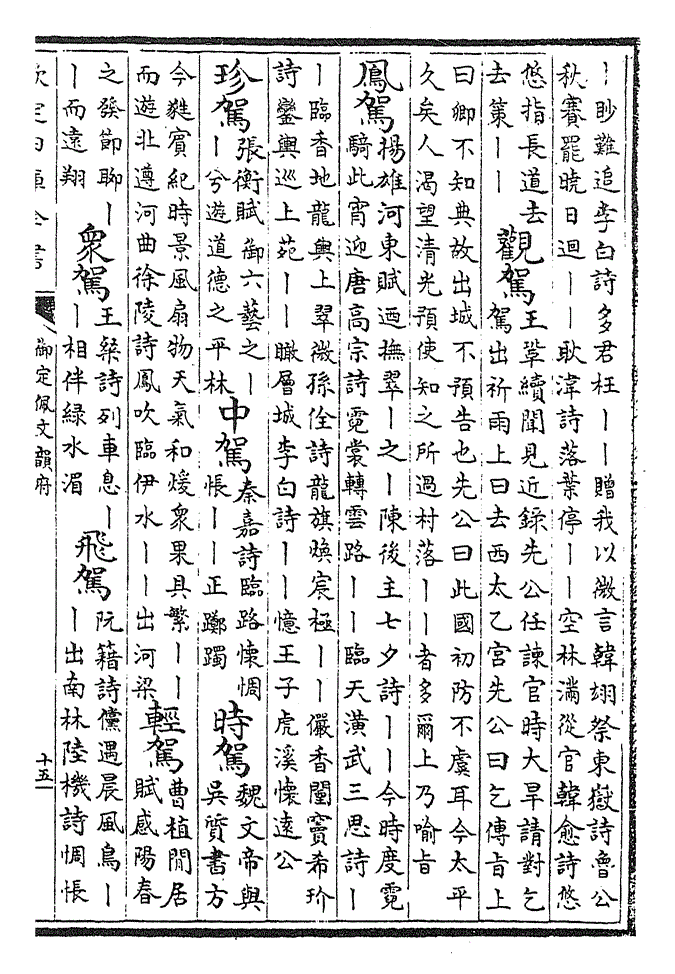 丨眇難追李白詩多君枉丨丨贈我以微言韓翃祭東嶽詩魯公
秋賽罷曉日迴丨丨耿湋詩落葉停丨丨空林滿從官韓愈詩悠
悠指長道去
去策丨丨
觀駕
王鞏續聞見近錄先公任諫官時大旱請對乞
駕出祈雨上曰去西太乙宮先公曰乞傳旨上
曰卿不知典故出城不預告也先公曰此國初防不虞耳今太平
久矣人渴望清光預使知之所過村落丨丨者多爾上乃喻旨
鳳駕
楊雄河東賦迺撫翠丨之丨陳後主七夕詩丨丨今時度霓
騎此宵迎唐高宗詩霓裳轉雲路丨丨臨天潢武三思詩丨
丨臨香地龍輿上翠微孫佺詩龍旗煥宸極丨丨儼香闈竇希玠
詩鑾輿巡上苑丨丨瞰層城李白詩丨丨憶王子虎溪懷遠公
珍駕
張衡賦御六藝之丨
丨兮遊道德之平林
中駕
秦嘉詩臨路懷惆
悵丨丨正躑躅
時駕
魏文帝與
吳質書方
今蕤賓紀時景風扇物天氣和煖衆果具繁丨丨
而遊北遵河曲徐陵詩鳳吹臨伊水丨丨出河梁
輕駕
曹植閒居
賦感陽春
之發節聊丨
丨而遠翔
衆駕
王粲詩列車息丨
丨相伴綠水湄
飛駕
阮籍詩儻遇晨風鳥丨
丨出南林陸機詩惆悵
欽定四庫全書
御定佩文韻府
十五